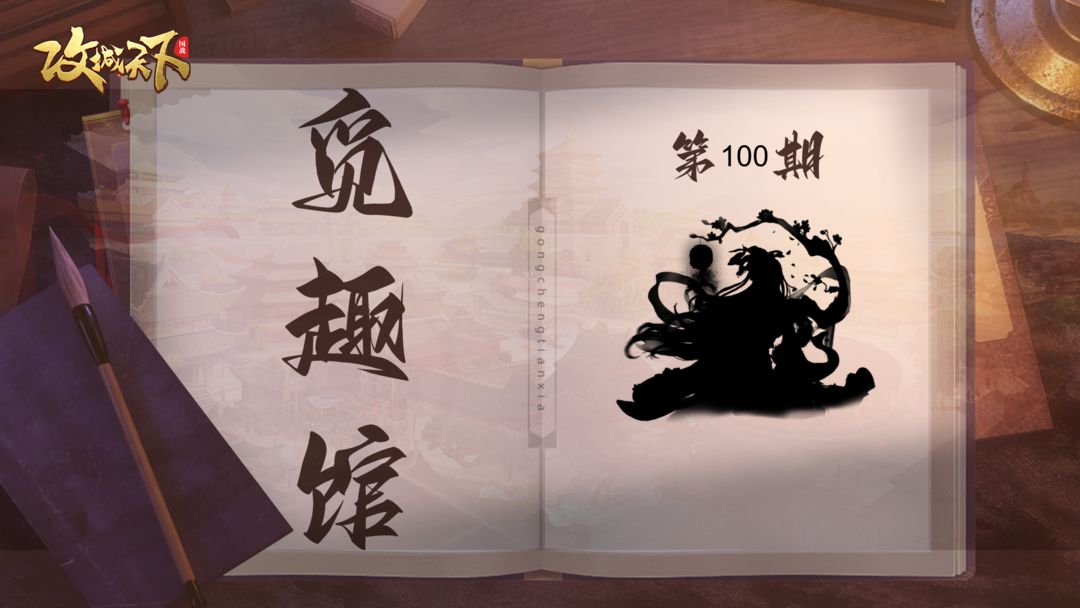 攻城天下
国战
觅趣馆
第100期
gongchengtianxia